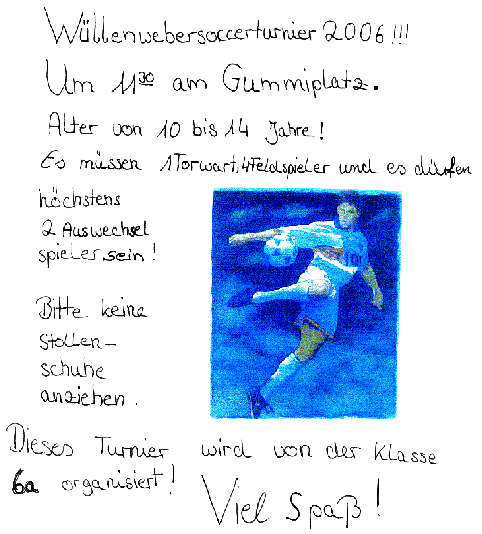 Wüllenwebersoccerturnier 2006!!!
Um 11³⁰ am Gummiplatz.
Alter von 10 bis 14 Jahre!
Es müssen 1 Torwart, 4 Feldspieler und es dürfen
höchstens
2 Auswechsel
spieler sein!
Bitte keine
Stollen-
schuhe
anziehen.
Dieses Turnier wird von der Klasse
6a organisiert!
Viel Spaß!